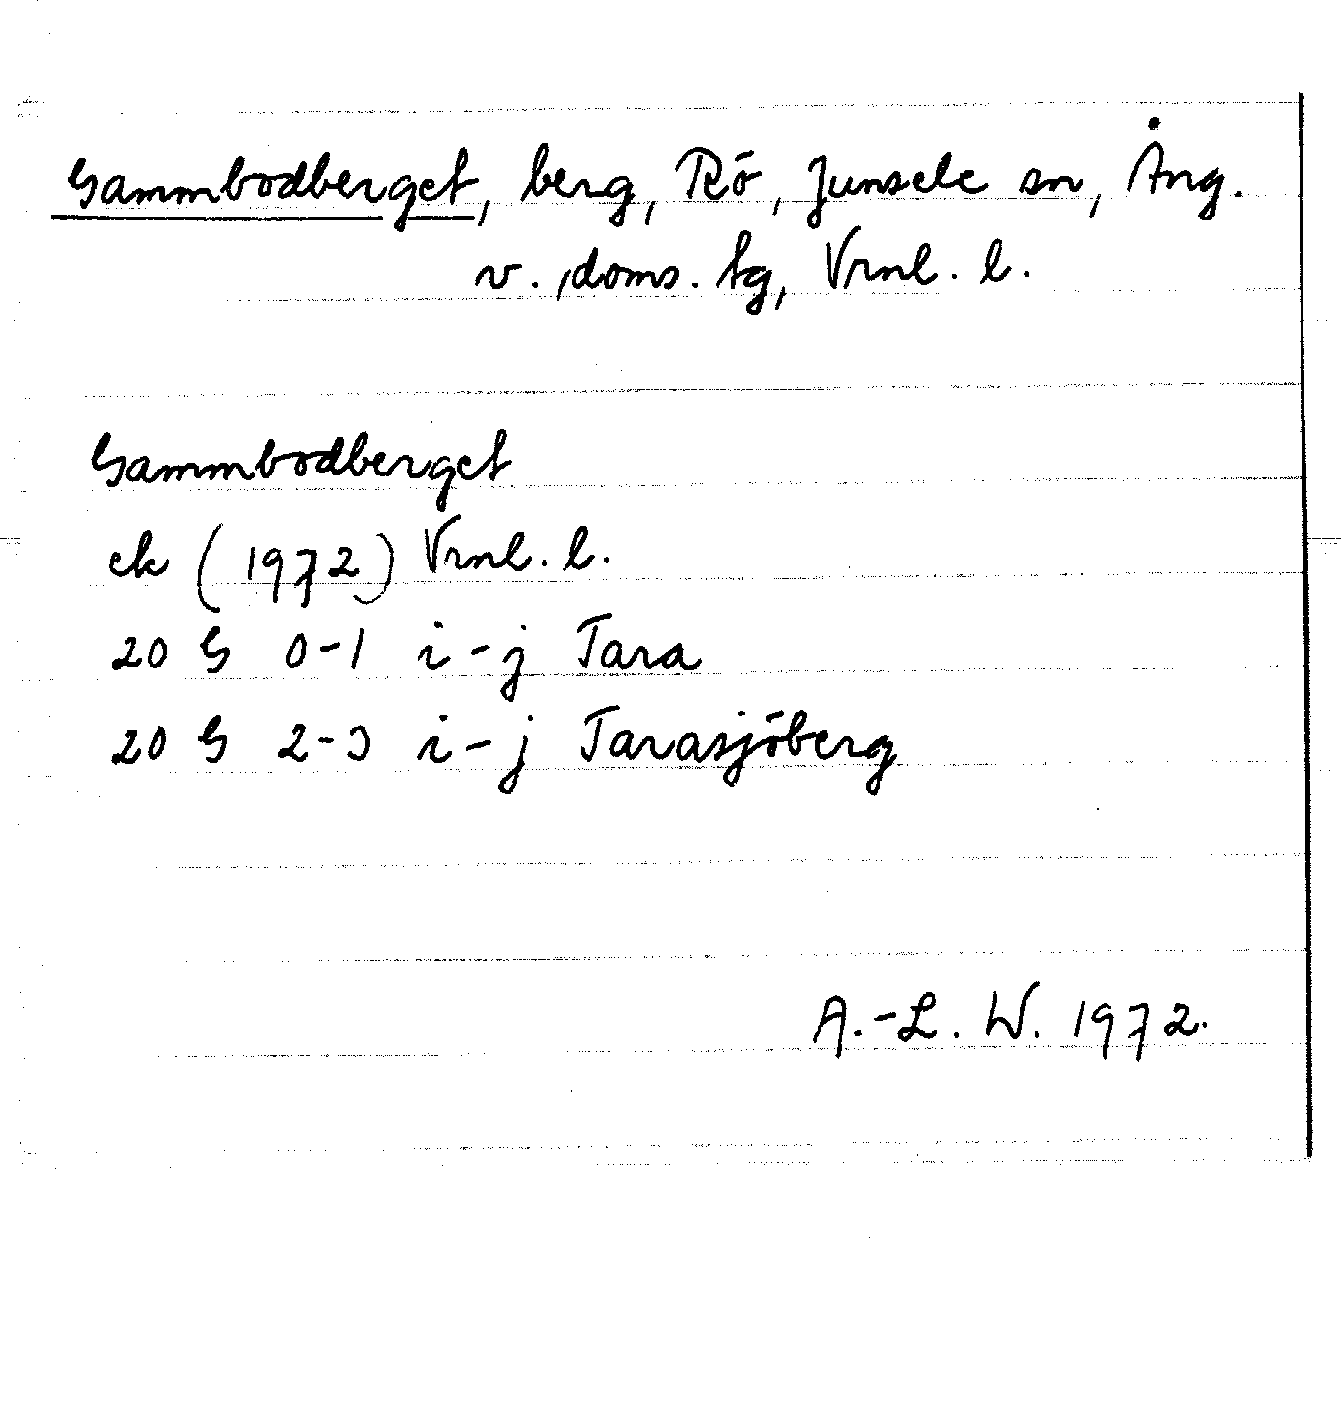 Gammbodberget, berg, Rö, Junsele sn, Ång.
v. doms. tg, Vrnl. l.
Gammbodberget
ek (1972) Vrnl. l.
20 G 0-1 i-j Tara
20 G 2-3 i-j Tarasjöberg
A.-L. W. 1972.